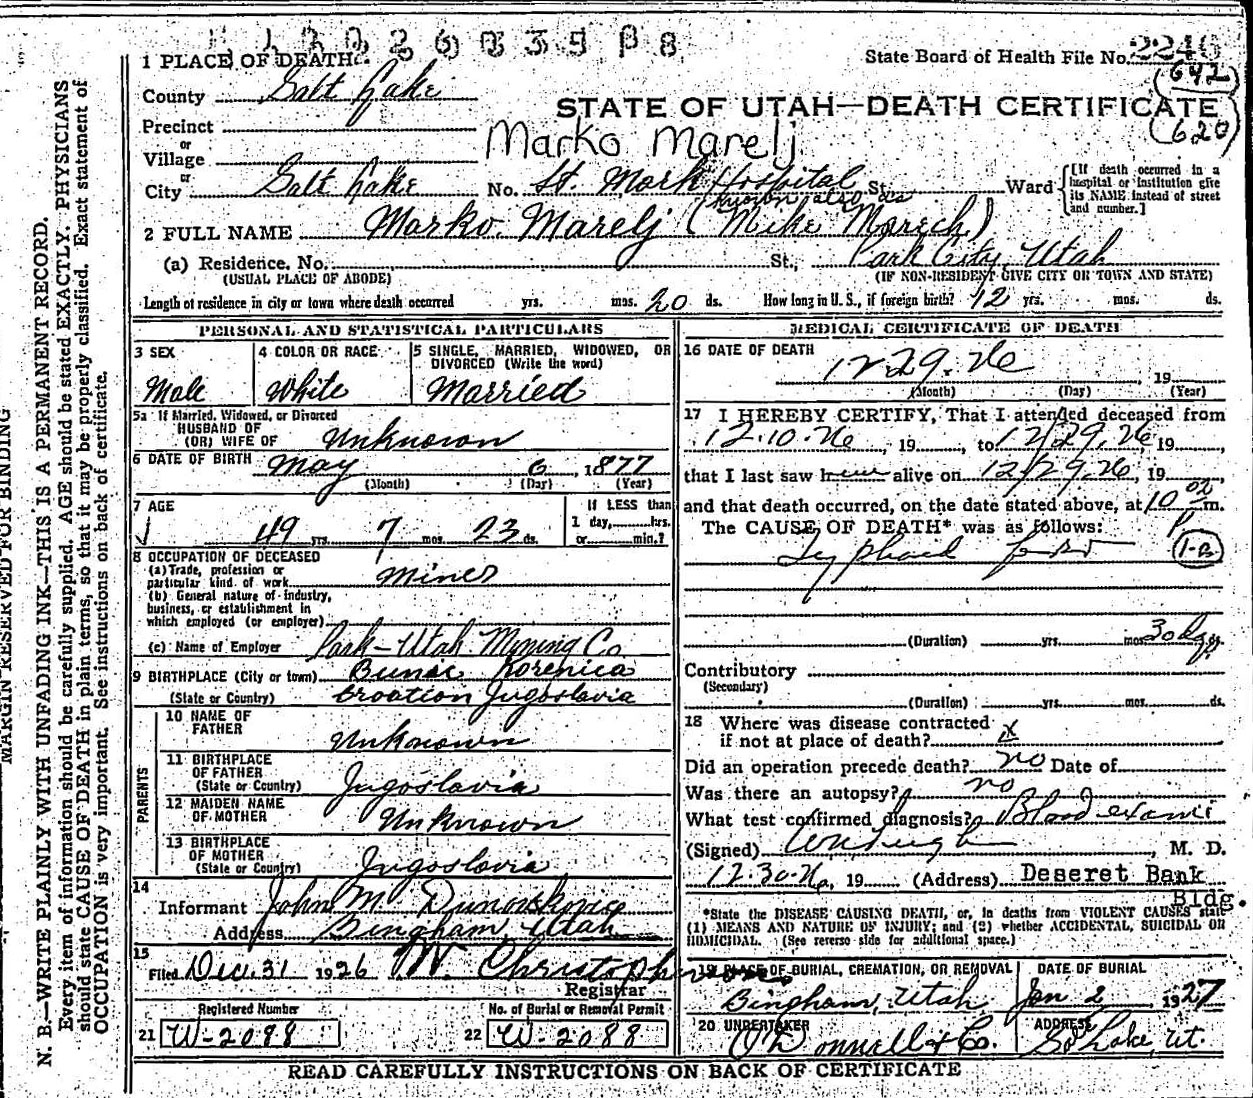 1 PLACE OF DEATH. State Board of Health File No. 2246
(642)
County Salt Lake
STATE OF UTAH—DEATH CERTIFICATE
(620)
Precinct
or
Village
Marko Marelj
or
City Salt Lake No. St. Mark Hospital St. Ward [If death occurred in a hospital or institution give its NAME instead of street and number.]
known also as
2 FULL NAME Marko Marelj (Mike Marich)
(a) Residence. No. St., Park City, Utah
(USUAL PLACE OF ABODE) (IF NON-RESIDENT GIVE CITY OR TOWN AND STATE)
Length of residence in city or town where death occurred yrs. mos. 20 ds. How long in U. S., if foreign birth? 12 yrs. mos. ds.
PERSONAL AND STATISTICAL PARTICULARS
3 SEX
Male
4 COLOR OR RACE
White
5 SINGLE, MARRIED, WIDOWED, OR DIVORCED (Write the word)
Married
5a If Married, Widowed, or Divorced
HUSBAND OF
(OR) WIFE OF Unknown
6 DATE OF BIRTH May 6, 1877
(Month) (Day) (Year)
7 AGE
49 yrs. 7 mos. 23 ds.
If LESS than
1 day, hrs.
or min.?
8 OCCUPATION OF DECEASED
(a) Trade, profession or
particular kind of work Miner
(b) General nature of industry,
business, or establishment in
which employed (or employer)
(c) Name of Employer Park-Utah Mining Co.
9 BIRTHPLACE (City or town) Bunic Korenica
(State or Country) Croation Jugoslavia
PARENTS
10 NAME OF
FATHER Unknown
11 BIRTHPLACE
OF FATHER
(State or Country) Jugoslavia
12 MAIDEN NAME
OF MOTHER Unknown
13 BIRTHPLACE
OF MOTHER
(State or Country) Jugoslavia
14
Informant John M.
Address Bingham, Utah
15
Filed Dec. 31 1926 Christopherson
Registrar
Registered Number
21 W-2088
No. of Burial or Removal Permit
22 W-2088
MEDICAL CERTIFICATE OF DEATH
16 DATE OF DEATH
12-29-26, 19
(Month) (Day) (Year)
17 I HEREBY CERTIFY, That I attended deceased from
12.10.26, 19, to 12/29.26 19
that I last saw him alive on 12/29.26, 19
and that death occurred, on the date stated above, at 10 02 P m.
The CAUSE OF DEATH* was as follows:
Typhoid fever
(1-B)
(Duration) yrs. mos. 30 dys ds.
Contributory
(Secondary)
(Duration) yrs. mos. ds.
18 Where was disease contracted
if not at place of death? x
Did an operation precede death? no Date of
Was there an autopsy? no
What test confirmed diagnosis? Blood exam
(Signed) , M. D.
12.30.26, 19 (Address) Deseret Bank
Bldg.
*State the DISEASE CAUSING DEATH, or, in deaths from VIOLENT CAUSES state
(1) MEANS AND NATURE OF INJURY; and (2) whether ACCIDENTAL, SUICIDAL OR
HOMICIDAL. (See reverse side for additional space.)
19 PLACE OF BURIAL, CREMATION, OR REMOVAL
Bingham, Utah
DATE OF BURIAL
Jan 2 1927
20 UNDERTAKER
O'Donnell & Co.
ADDRESS
So Lake, Ut.
READ CAREFULLY INSTRUCTIONS ON BACK OF CERTIFICATE
MARGIN RESERVED FOR BINDING
N. B.—WRITE PLAINLY WITH UNFADING INK—THIS IS A PERMANENT RECORD.
Every item of information should be carefully supplied. AGE should be stated EXACTLY. PHYSICIANS
should state CAUSE OF DEATH in plain terms, so that it may be properly classified. Exact statement of
OCCUPATION is very important. See instructions on back of certificate.